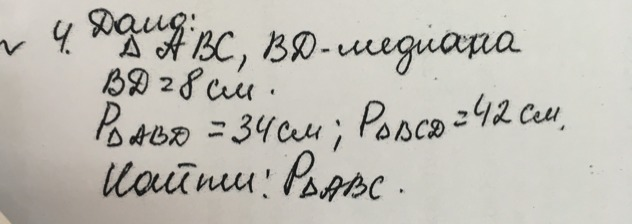 4. Дано:
Δ ABC, BD - медиана
BD = 8 см.
PΔABD = 34 см; PΔBCD = 42 см.
Найти: PΔABC.